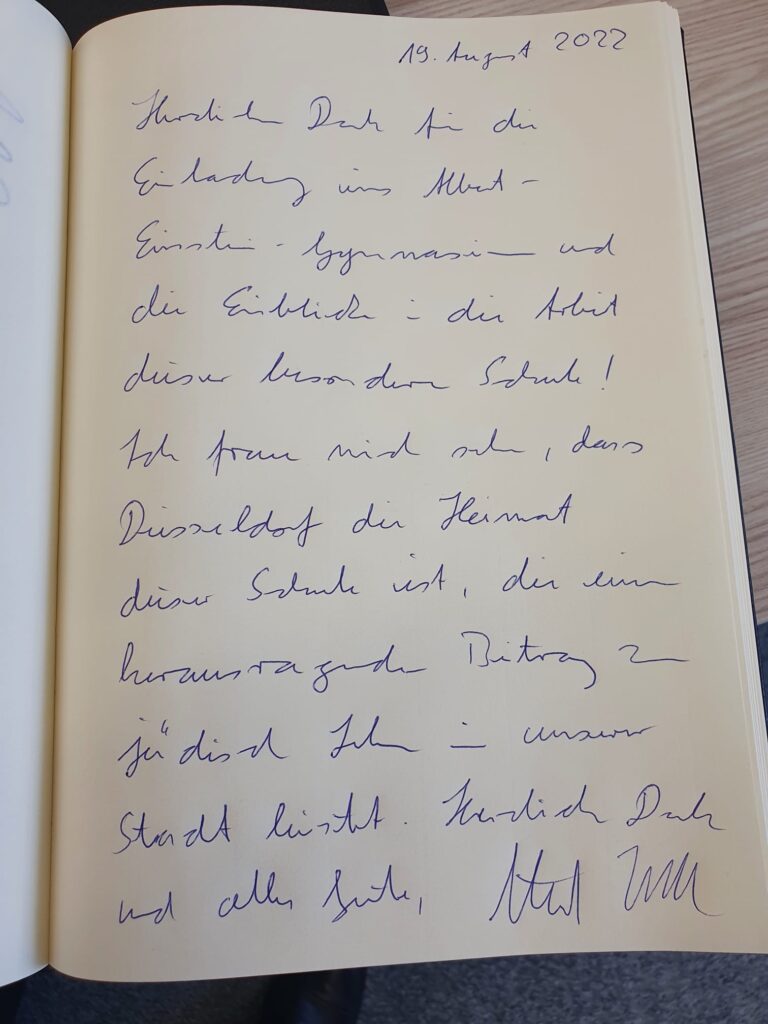 19. August 2022
Herzlichen Dank für die
Einladung ins Albert-
Einstein-Gymnasium und
die Einblicke in die Arbeit
dieser besonderen Schule!
Ich freue mich sehr, dass
Düsseldorf die Heimat
dieser Schule ist, die einen
herausragenden Beitrag zum
jüdischen Leben in unserer
Stadt leistet. Herzlichen Dank
und alles Gute,